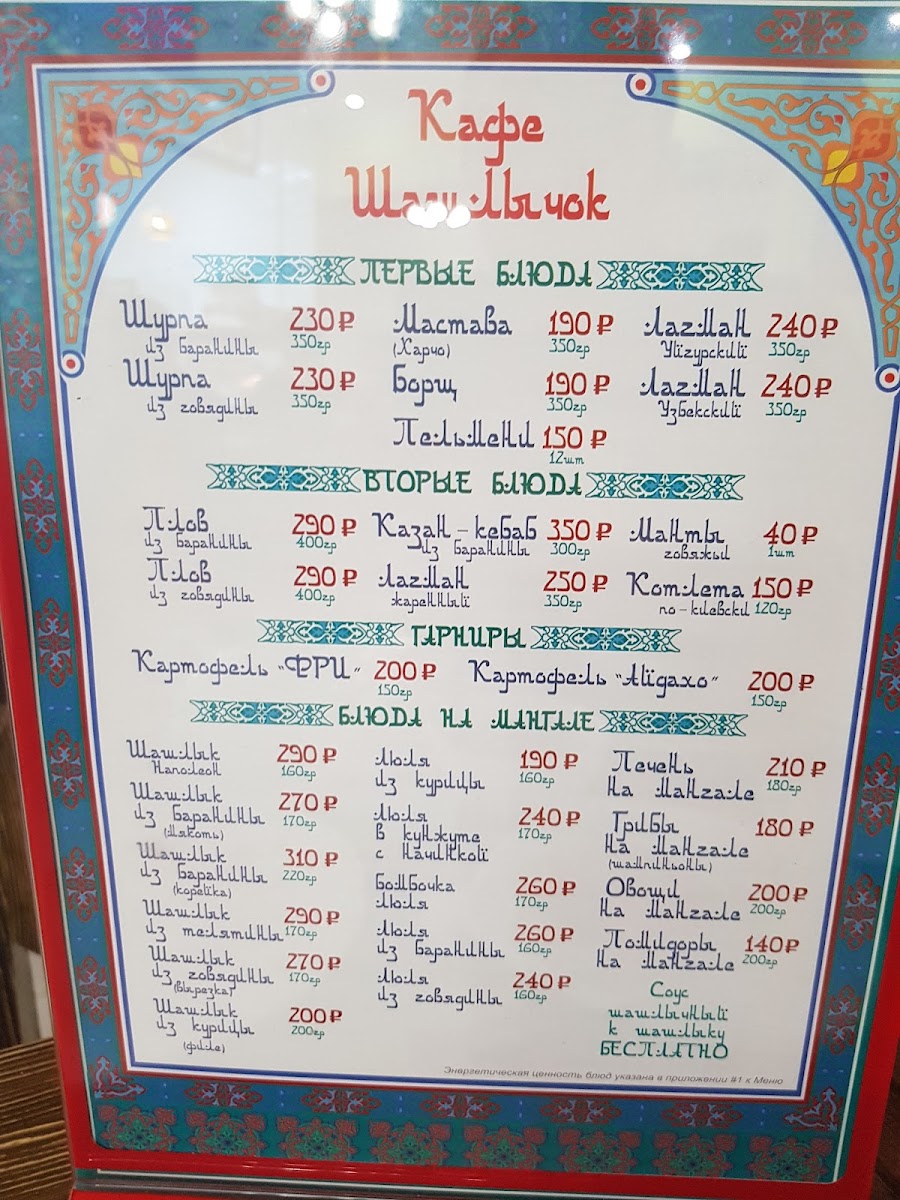 Кафе
Шашлычок
ПЕРВЫЕ БЛЮДА
Шурпа 230 ₽ Мастава 190 ₽ Лагман 240 ₽
из баранины 350гр (Харчо) 350гр Уйгурский 350гр
Шурпа 230 ₽ Борщ 190 ₽ Лагман 240 ₽
из говядины 350гр 350гр Узбекский 350гр
Пельмени 150 ₽
12шт
ВТОРЫЕ БЛЮДА
Плов 290 ₽ Казан-кебаб 350 ₽ Манты 40 ₽
из баранины 400гр из баранины 300гр говяжьи 1шт
Плов 290 ₽ Лагман 250 ₽ Котлета 150 ₽
из говядины 400гр жаренный 350гр по-киевски 120гр
ГАРНИРЫ
Картофель "ФРИ" 200 ₽ Картофель "Айдахо" 200 ₽
150гр 150гр
БЛЮДА НА МАНГАЛЕ
Шашлык 290 ₽
Наполеон 160гр
Шашлык 270 ₽
из баранины 170гр
(мякоть)
Шашлык 310 ₽
из баранины 220гр
(корейка)
Шашлык 290 ₽
из телятины 170гр
Шашлык 270 ₽
из говядины 170гр
(вырезка)
Шашлык 200 ₽
из курицы 200гр
(филе)
Люля 190 ₽
из курицы 160гр
Люля 240 ₽
в кунжуте 170гр
с начинкой
Бомбочка 260 ₽
люля 170гр
Люля 260 ₽
из баранины 160гр
Люля 240 ₽
из говядины 160гр
Печень 210 ₽
на мангале 180гр
Грибы 180 ₽
на мангале
(шампиньоны)
Овощи 200 ₽
на мангале 200гр
Помидоры 140 ₽
на мангале 200гр
Соус
шашлычный
к шашлыку
БЕСПЛАТНО
Энергетическая ценность блюд указана в приложении #1 к Меню